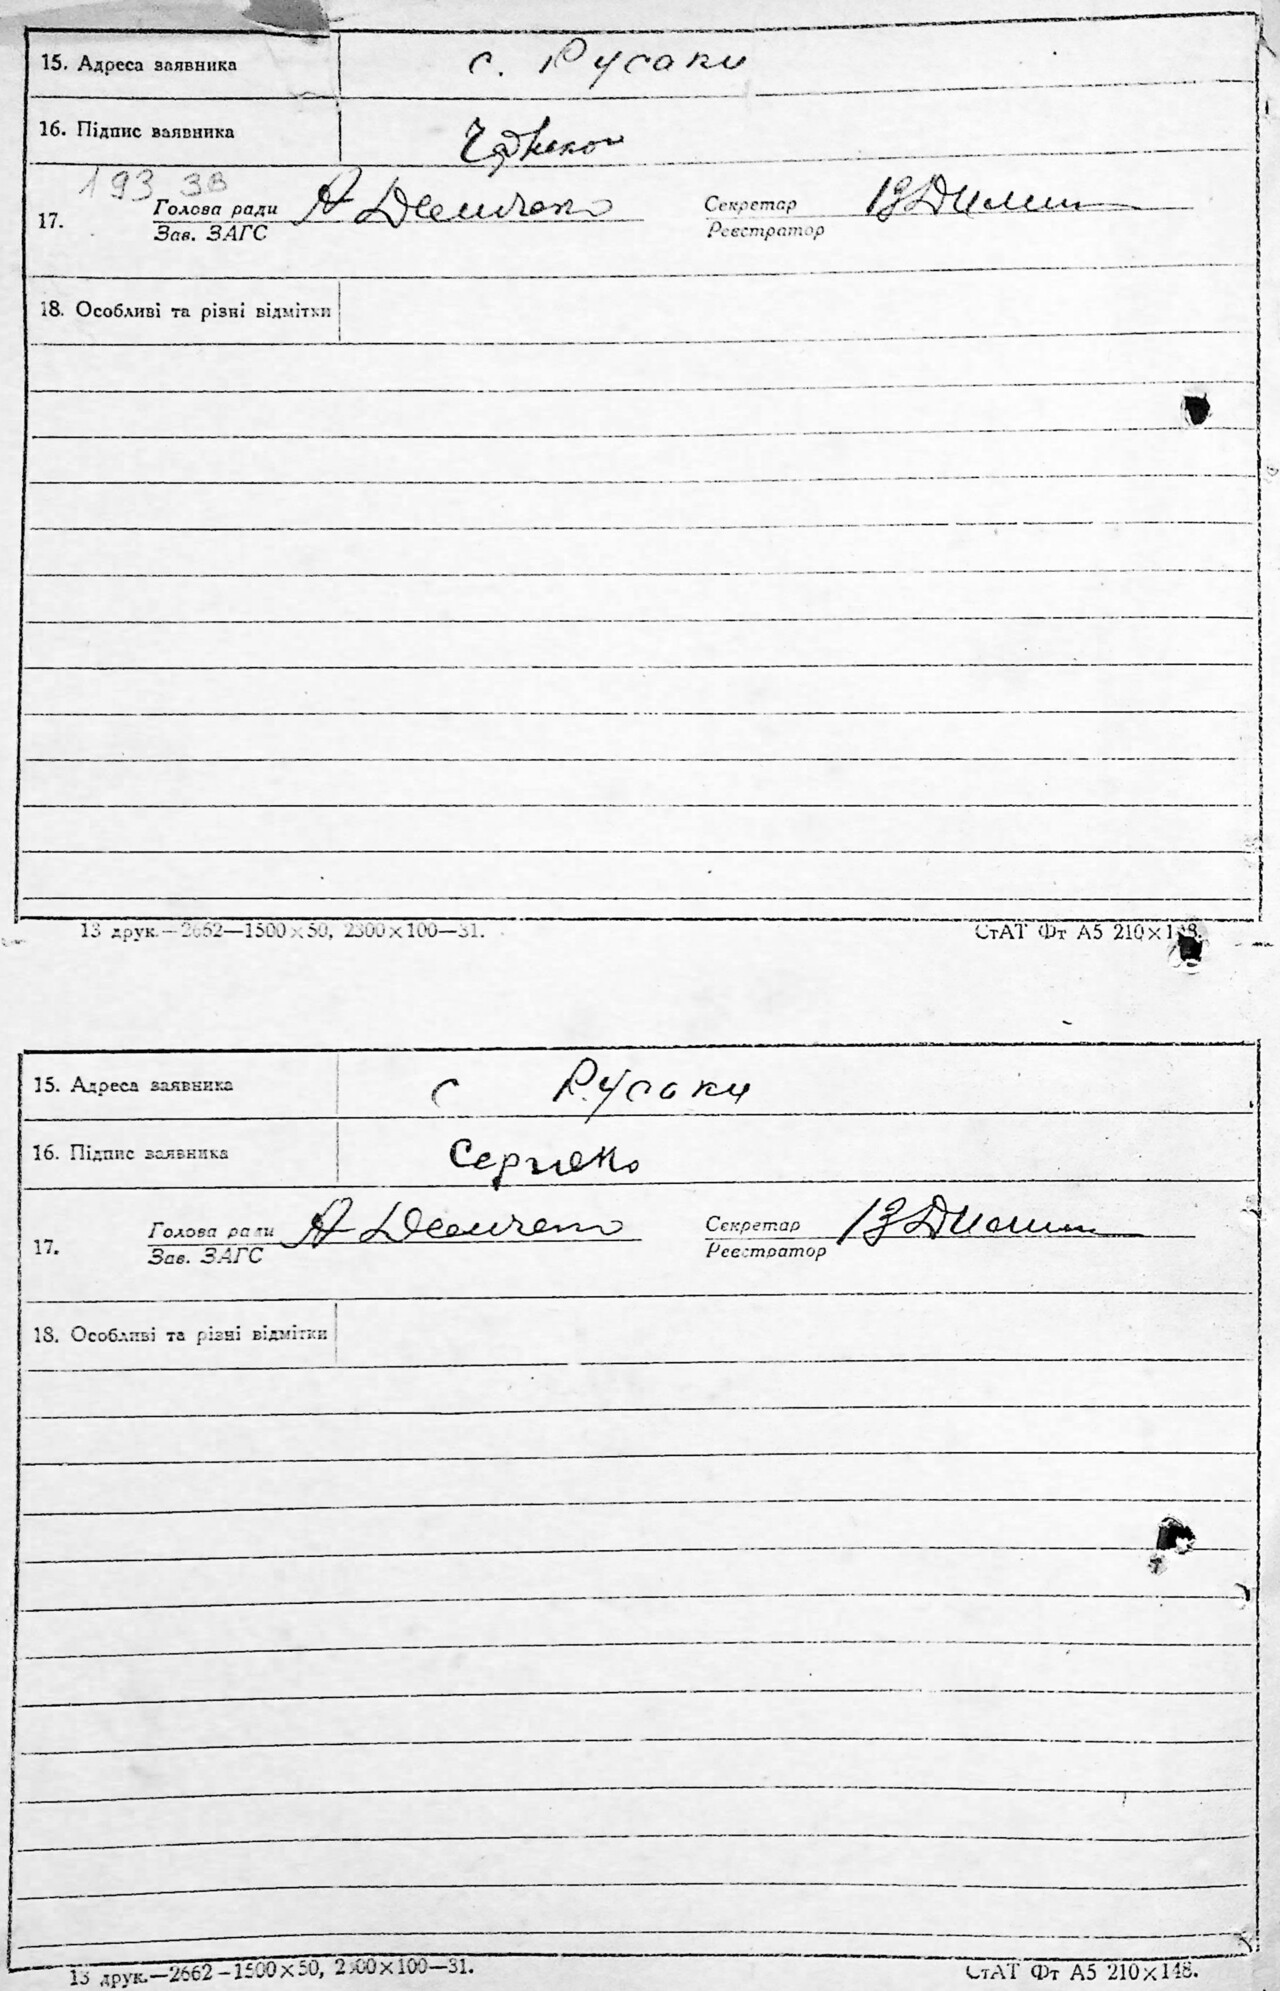 15. Адреса заявника с. Русаки
16. Підпис заявника
193 зв
17. Голова ради А Демченко Секретар
Зав. ЗАГС Реєстратор
18. Особливі та різні відмітки
13 друк.—2662—1500×50, 2300×100—31. СтАТ Фт А5 210×148.
15. Адреса заявника с Русаки
16. Підпис заявника Сергиенко
17. Голова ради А Демченко Секретар
Зав. ЗАГС Реєстратор
18. Особливі та різні відмітки
13 друк.—2662—1500×50, 2300×100—31. СтАТ Фт А5 210×148.